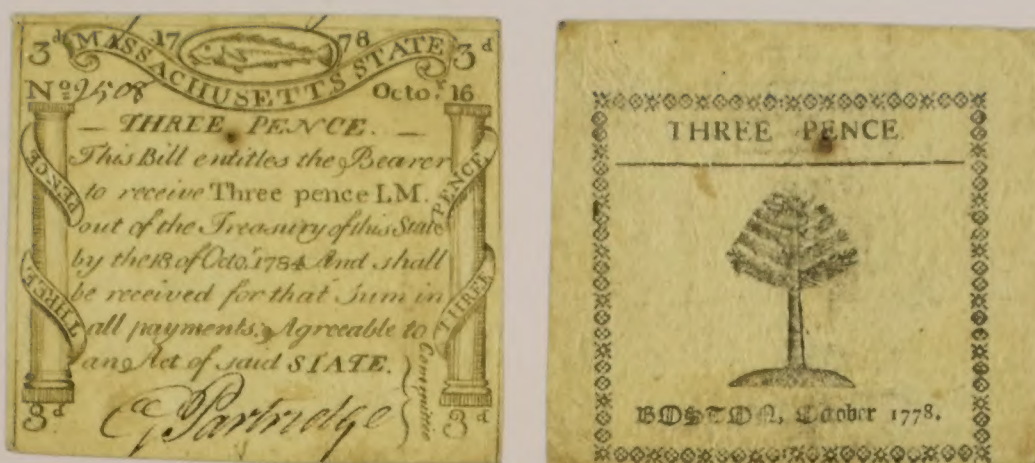 3d MASSACHUSETTS STATE 3d
17 78
No 2508 Octor. 16
THREE PENCE.
This Bill entitles the Bearer
to receive Three pence LM.
out of the Treasury of this State
by the 18 of Octor. 1784 And shall
be received for that Sum in
all payments. Agreeable to
an Act of said STATE.
PENCE
THREE
PENCE
THREE
Committee
Partridge
3d 3d
THREE PENCE.
BOSTON, October 1778.